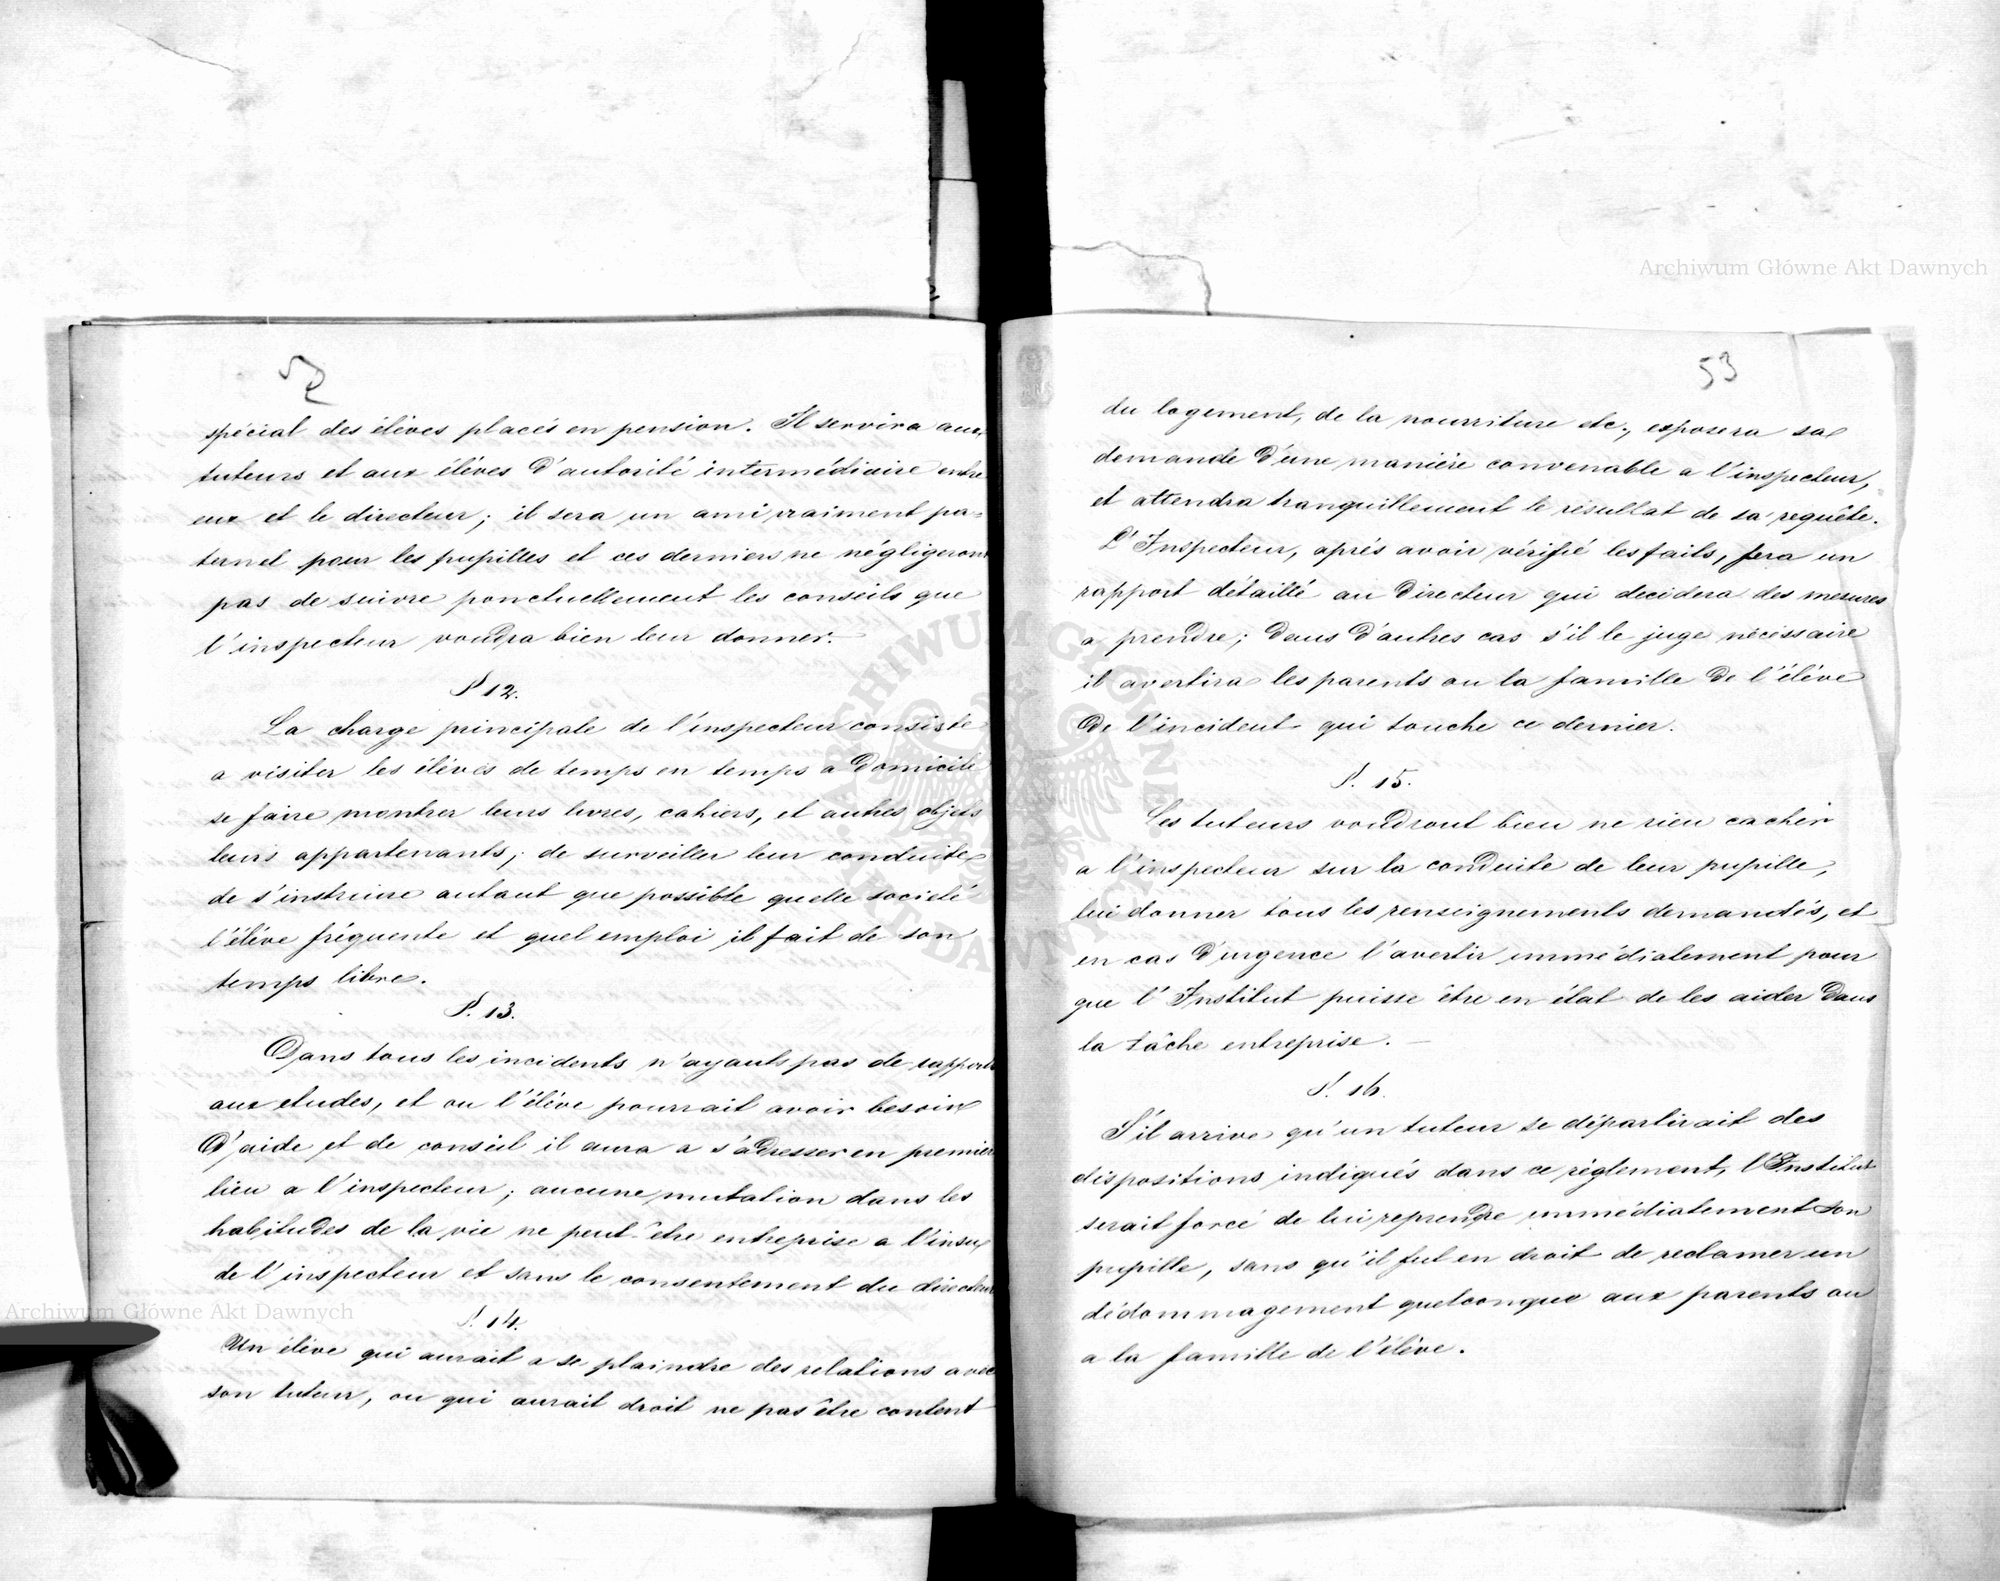 52
spécial des élèves placés en pension. Il servira aux
tuteurs et aux élèves d'autorité intermédiaire entre
eux et le directeur; il sera un ami vraiment pa-
ternel pour les pupilles et ces derniers ne négligeront
pas de suivre ponctuellement les conseils que
l'inspecteur voudra bien leur donner.
§ 12.
La charge principale de l'inspecteur consiste
a visiter les élèves de temps en temps a domicile
se faire montrer leurs livres, cahiers, et autres objets
leurs appartenants; de surveiller leur conduite
de s'instruire autant que possible quelle societé
l'élève fréquente et quel emploi il fait de son
temps libre.
§. 13.
Dans tous les incidents n'ayants pas de rapport
aux etudes, et ou l'élève pourrait avoir besoin
d'aide et de conseil il aura a s'adresser en premier
lieu a l'inspecteur; aucune mutation dans les
habitudes de la vie ne peut-être entreprise a l'insu
de l'inspecteur et sans le consentement du directeur
§. 14.
Un élève qui aurait a se plaindre des relations avec
son tuteur, ou qui aurait droit ne pas être content
53
du logement, de la nourriture etc., exposera sa
demande d'une manière convenable a l'inspecteur,
et attendra tranquillement le résultat de sa requête.
L'Inspecteur, après avoir vérifié les faits, fera un
rapport détaillé au directeur qui decidera des mesures
a prendre; dans d'autres cas s'il le juge nécéssaire
il avertira les parents ou la famille de l'élève
de l'incident qui touche ce dernier.
§. 15.
Les tuteurs voudront bien ne rien cacher
a l'inspecteur sur la conduite de leur pupille,
lui donner tous les renseignements demandés, et
en cas d'urgence l'avertir immédiatement pour
que l'Institut puisse être en état de les aider dans
la tâche entreprise. —
§. 16.
S'il arrive qu'un tuteur se départirait des
dispositions indiqués dans ce règlement, l'Institut
serait forcé de lui reprendre immédiatement son
pupille, sans qu'il fut en droit de reclamer un
dédommagement quelconque aux parents ou
a la famille de l'élève.
Archiwum Główne Akt Dawnych
Archiwum Główne Akt Dawnych
ARCHIWUM GŁÓWNE AKT DAWNYCH